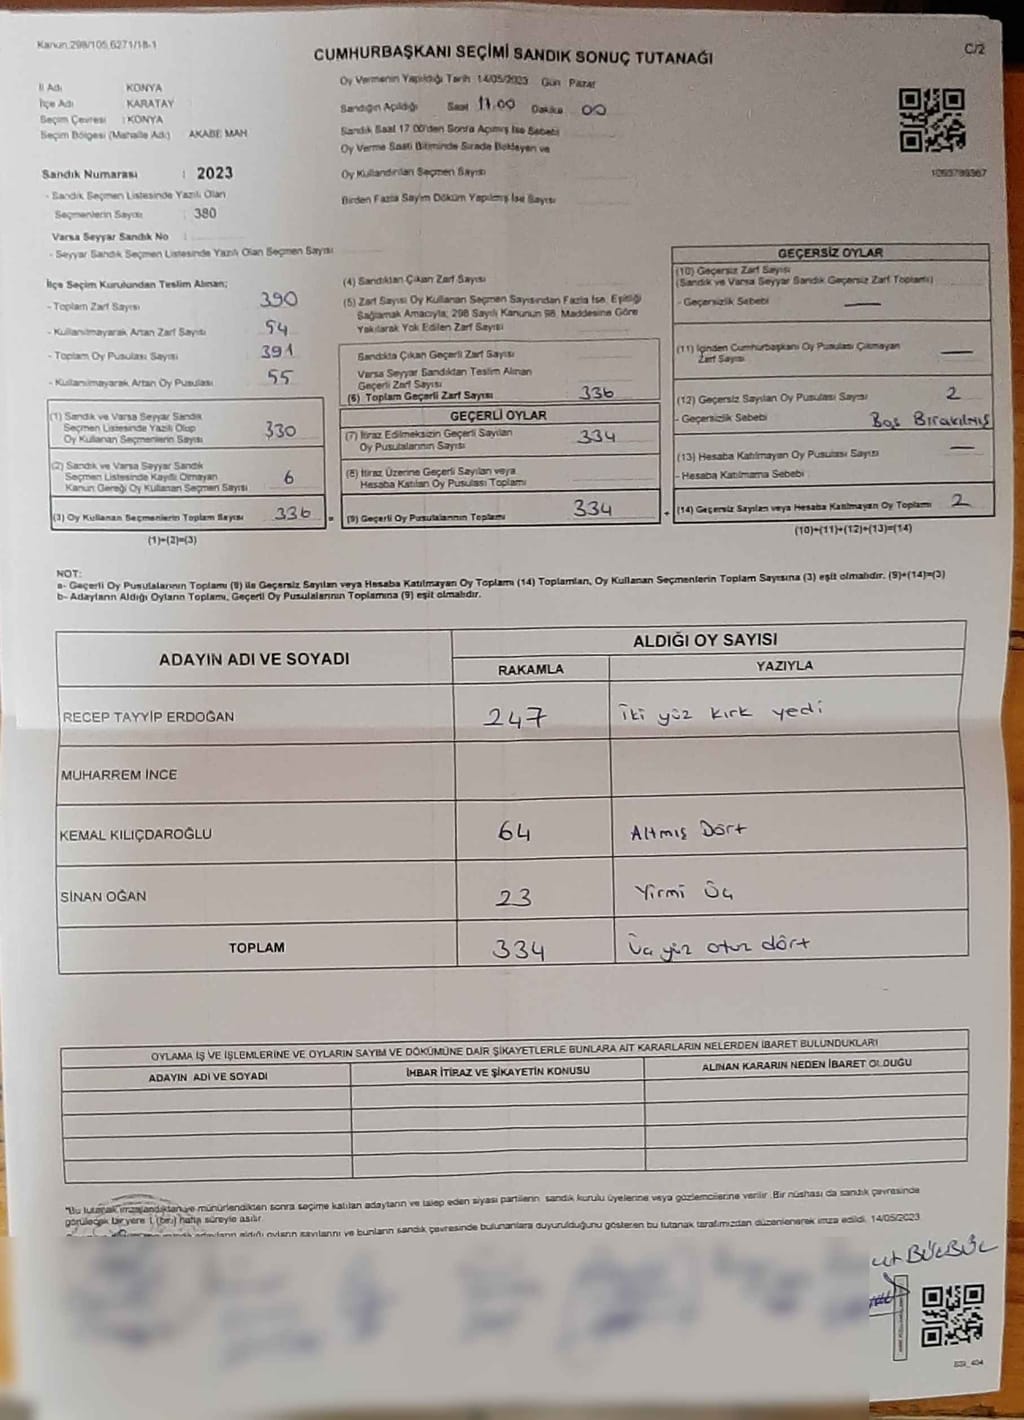 Kanun:298/105,6271/18-1
C/2
CUMHURBAŞKANI SEÇİMİ SANDIK SONUÇ TUTANAĞI
İl Adı KONYA
İlçe Adı KARATAY
Seçim Çevresi : KONYA
Seçim Bölgesi (Mahalle Adı) AKABE MAH
Sandık Numarası : 2023
- Sandık Seçmen Listesinde Yazılı Olan
Seçmenlerin Sayısı : 380
Varsa Seyyar Sandık No :
- Seyyar Sandık Seçmen Listesinde Yazılı Olan Seçmen Sayısı
Oy Vermenin Yapıldığı Tarih : 14/05/2023 Gün Pazar
Sandığın Açıldığı Saat 17.00 Dakika 00
Sandık Saat 17.00'den Sonra Açılmış İse Sebebi
Oy Verme Saati Bitiminde Sırada Bekleyen ve
Oy Kullandırılan Seçmen Sayısı
Birden Fazla Sayım Döküm Yapılmış İse Sayısı
1093789967
İlçe Seçim Kurulundan Teslim Alınan;
- Toplam Zarf Sayısı 390
- Kullanılmayarak Artan Zarf Sayısı 54
- Toplam Oy Pusulası Sayısı 391
- Kullanılmayarak Artan Oy Pusulası 55
(1) Sandık ve Varsa Seyyar Sandık
Seçmen Listesinde Yazılı Olup
Oy Kullanan Seçmenlerin Sayısı 330
(2) Sandık ve Varsa Seyyar Sandık
Seçmen Listesinde Kayıtlı Olmayan
Kanun Gereği Oy Kullanan Seçmen Sayısı 6
(3) Oy Kullanan Seçmenlerin Toplam Sayısı 336 =
(1)+(2)=(3)
(4) Sandıktan Çıkan Zarf Sayısı
(5) Zarf Sayısı Oy Kullanan Seçmen Sayısından Fazla İse, Eşitliği
Sağlamak Amacıyla; 298 Sayılı Kanunun 98. Maddesine Göre
Yakılarak Yok Edilen Zarf Sayısı
Sandıkta Çıkan Geçerli Zarf Sayısı
Varsa Seyyar Sandıktan Teslim Alınan
Geçerli Zarf Sayısı
(6) Toplam Geçerli Zarf Sayısı 336
GEÇERLİ OYLAR
(7) İtiraz Edilmeksizin Geçerli Sayılan
Oy Pusulalarının Sayısı 334
(8) İtiraz Üzerine Geçerli Sayılan veya
Hesaba Katılan Oy Pusulası Toplamı
(9) Geçerli Oy Pusulalarının Toplamı 334 +
GEÇERSİZ OYLAR
(10) Geçersiz Zarf Sayısı
(Sandık ve Varsa Seyyar Sandık Geçersiz Zarf Toplamı)
- Geçersizlik Sebebi —
(11) İçinden Cumhurbaşkanı Oy Pusulası Çıkmayan
Zarf Sayısı —
(12) Geçersiz Sayılan Oy Pusulası Sayısı 2
- Geçersizlik Sebebi Boş Bırakılmış
(13) Hesaba Katılmayan Oy Pusulası Sayısı —
- Hesaba Katılmama Sebebi
(14) Geçersiz Sayılan veya Hesaba Katılmayan Oy Toplamı 2
(10)+(11)+(12)+(13)=(14)
NOT:
a- Geçerli Oy Pusulalarının Toplamı (9) ile Geçersiz Sayılan veya Hesaba Katılmayan Oy Toplamı (14) Toplamları, Oy Kullanan Seçmenlerin Toplam Sayısına (3) eşit olmalıdır. (9)+(14)=(3)
b- Adayların Aldığı Oyların Toplamı, Geçerli Oy Pusulalarının Toplamına (9) eşit olmalıdır.
ADAYIN ADI VE SOYADI
ALDIĞI OY SAYISI
RAKAMLA YAZIYLA
RECEP TAYYİP ERDOĞAN 247 İki yüz kırk yedi
MUHARREM İNCE
KEMAL KILIÇDAROĞLU 64 Altmış Dört
SİNAN OĞAN 23 Yirmi Üç
TOPLAM 334 Üç yüz otuz dört
OYLAMA İŞ VE İŞLEMLERİNE VE OYLARIN SAYIM VE DÖKÜMÜNE DAİR ŞİKAYETLERLE BUNLARA AİT KARARLARIN NELERDEN İBARET BULUNDUKLARI
ADAYIN ADI VE SOYADI İHBAR İTİRAZ VE ŞİKAYETİN KONUSU ALINAN KARARIN NEDEN İBARET OLDUĞU
*Bu tutanak imzalandıktan ve mühürlendikten sonra seçime katılan adayların ve talep eden siyasi partilerin sandık kurulu üyelerine veya gözlemcilerine verilir. Bir nüshası da sandık çevresinde
görülecek bir yere 1 (bir) hafta süreyle asılır.
aldığı oyların sayılarını ve bunların sandık çevresinde bulunanlara duyurulduğunu gösteren bu tutanak tarafımızdan düzenlenerek imza edildi. 14/05/2023
BÜLBÜL